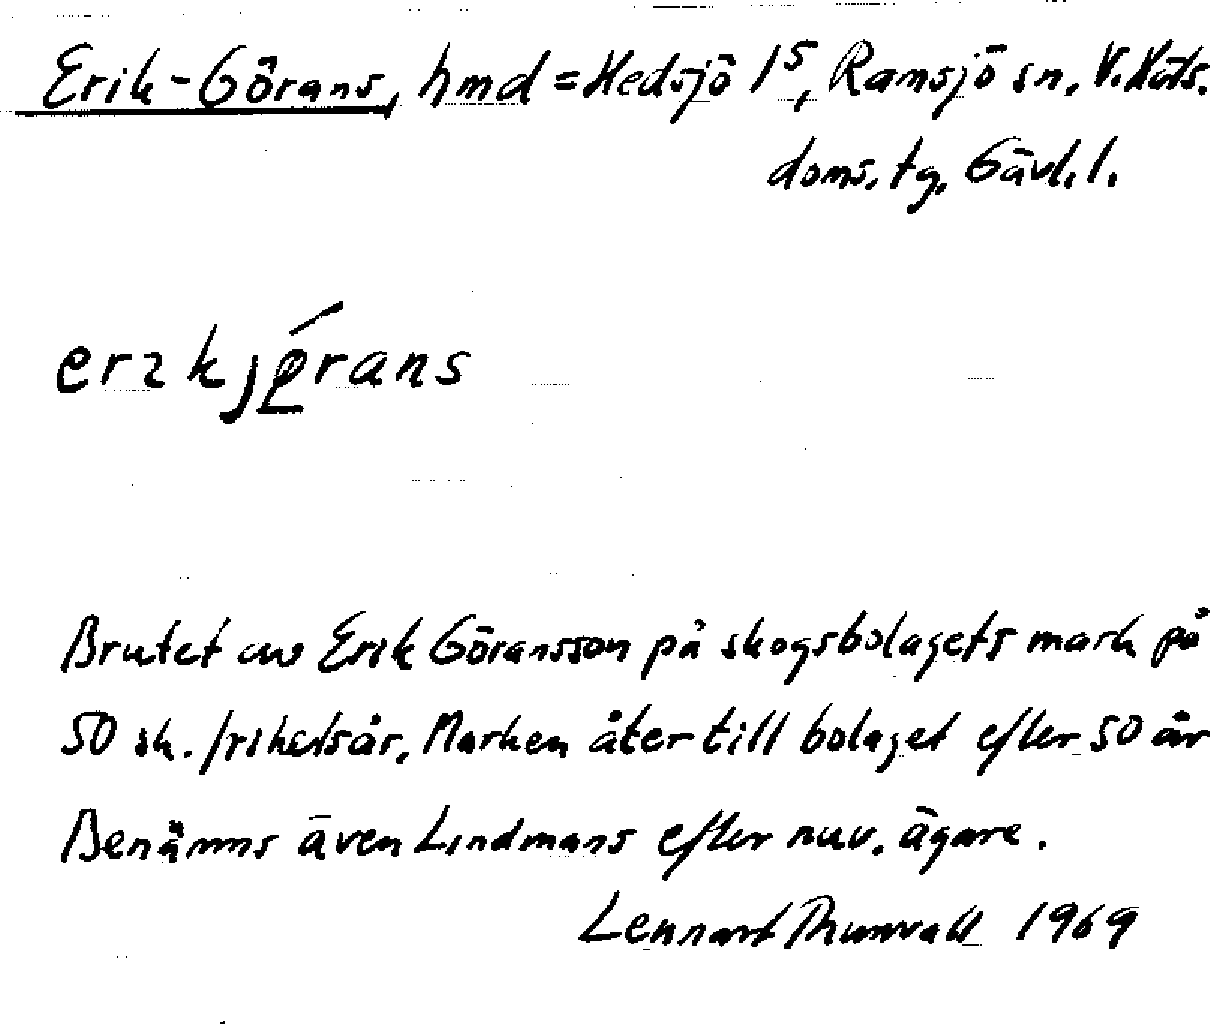 Erik-Görans, hmd = Hedsjö 1⁵, Ramsjö sn. V. Häls.
doms. tg. Gävl. l.
erɩkjǿrans
Brutet av Erik Göransson på skogsbolagets mark på
50 sk. frihetsår. Marken åter till bolaget efter 50 år
Benämns även Lindmans efter nuv. ägare.
Lennart Thunvall 1969